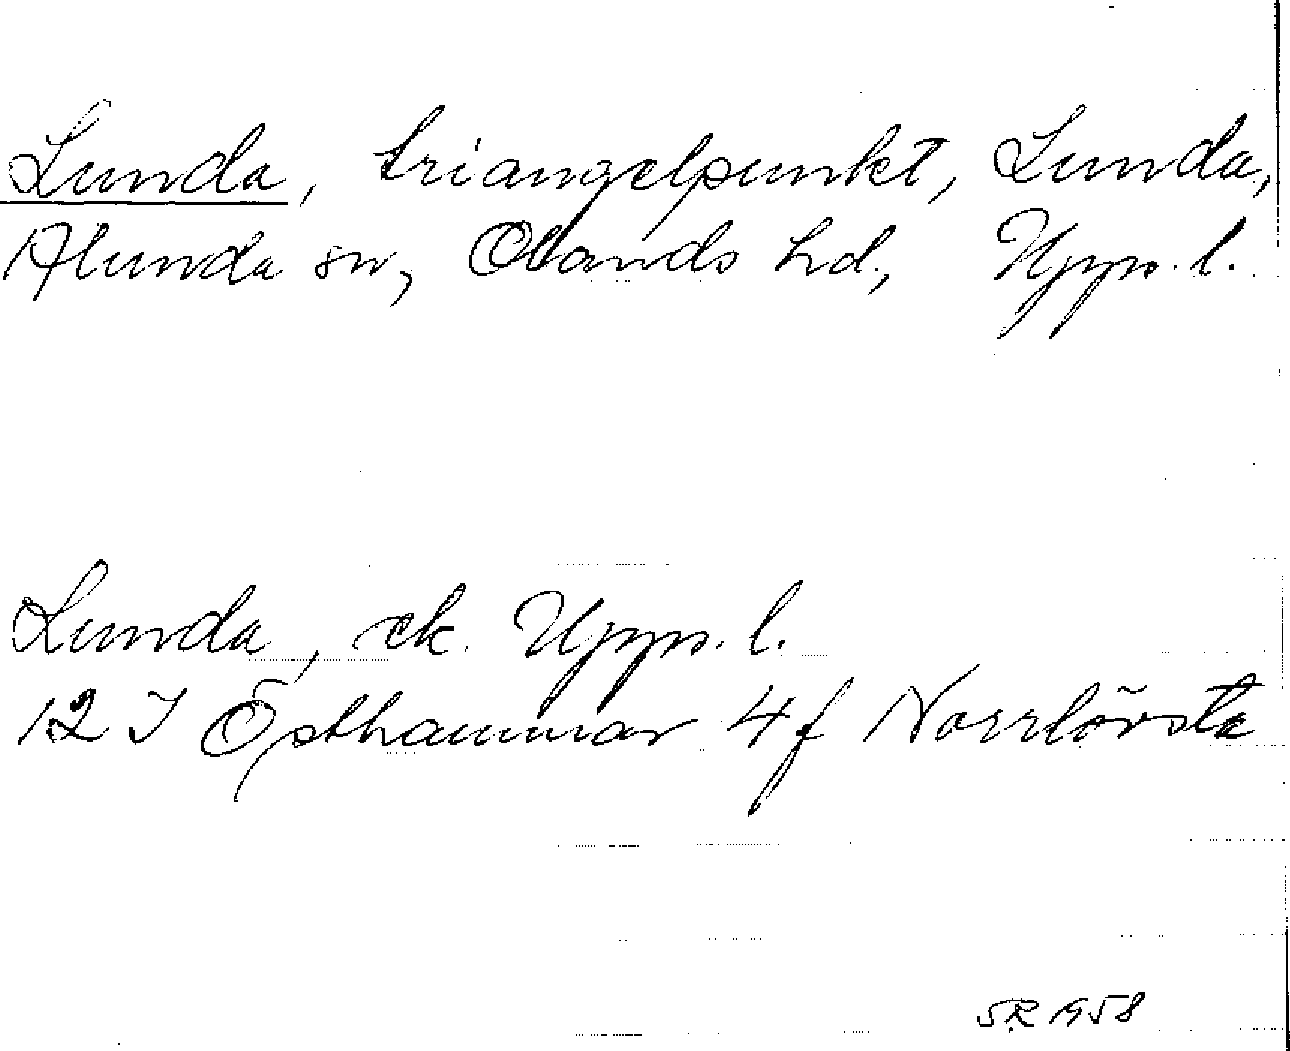 Lunda, triangelpunkt, Lunda,
Alunda sn, Olands hd, Upps. l.
Lunda, ek. Upps. l.
12 I Östhammar 4f Norrlövsta
SR 1958